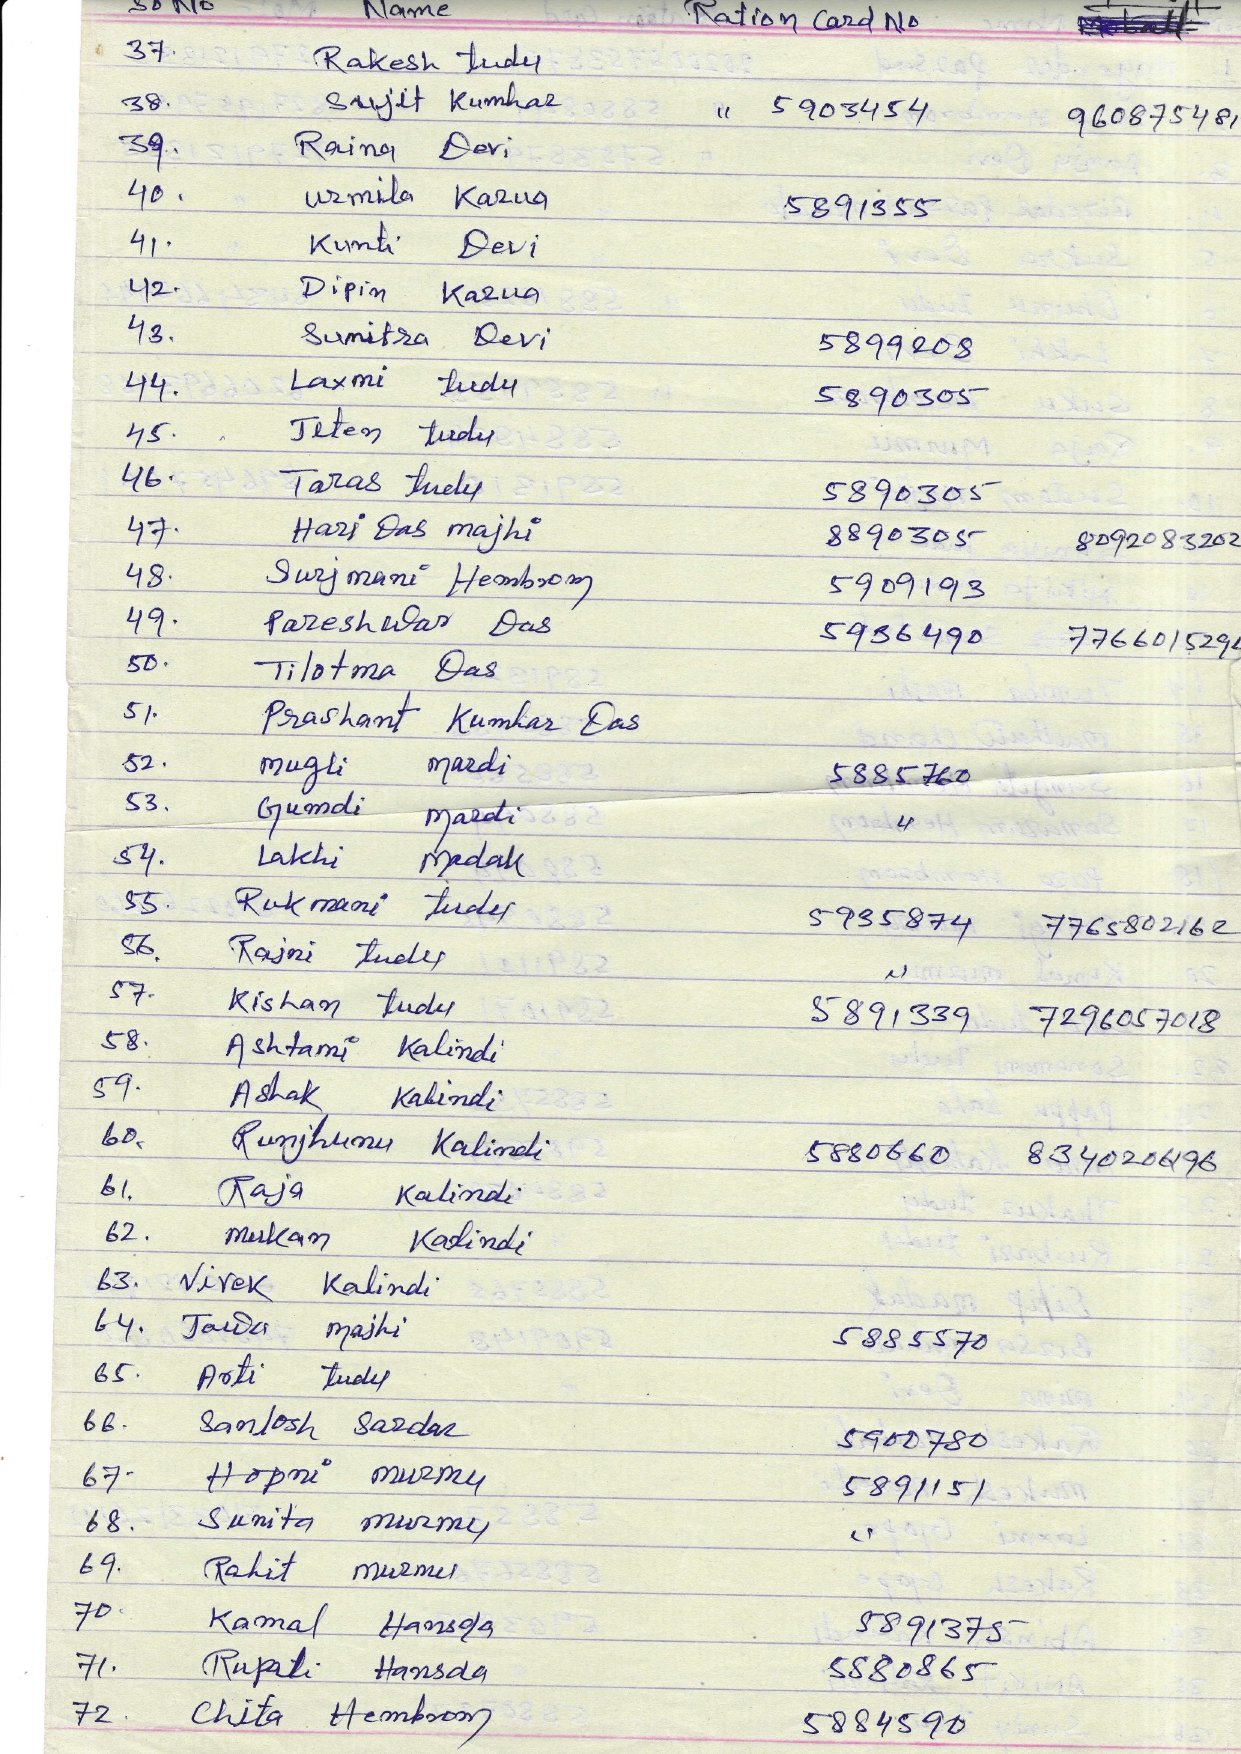 Sr No Name Ration Card No
37. Rakesh tudu
38. Sujit Kumhar " 5903454 960875481
39. Raina Devi
40. Urmila Karua 5891355
41. Kunti Devi
42. Dipin Karua
43. Sumitra Devi 5899208
44. Laxmi tudu 5890305
45. Jiten tudu
46. Taras tudu 5890305
47. Hari Das majhi 8890305 8092083202
48. Surjmani Hembrom 5909193
49. Pareshwar Das 5936490 776601529
50. Tilotma Das
51. Prashant Kumhar Das
52. mugli mardi 5885760
53. Gumdi mardi "
54. Lakhi madak
55. Rukmani tudu 5935874 7765802162
56. Rajni tudu "
57. Kishan tudu 5891339 7296057018
58. Ashtami Kalindi
59. Ashak Kalindi
60. Runjhunu Kalindi 5880660 8340206196
61. Raja Kalindi
62. mukan Kalindi
63. Vivek Kalindi
64. majhi 5885570
65. Arti tudu
66. Santosh Sardar 5900780
67. Hopni murmu 5891151
68. Sunita murmu "
69. Rahit murmu
70. Kamal Hansda 5891375
71. Rupali Hansda 5880865
72. Chita Hembrom 5884590